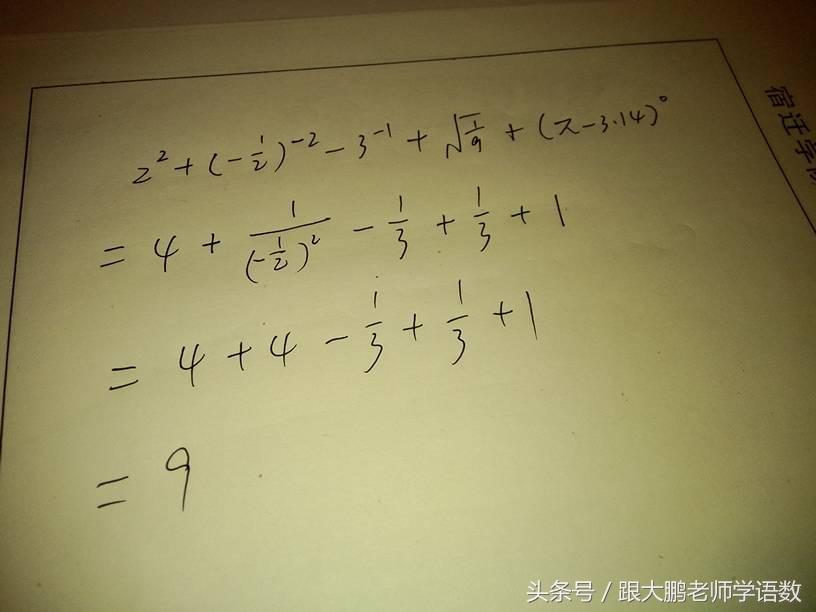 2² + (-1/2)⁻² - 3⁻¹ + √(1/9) + (π - 3.14)⁰
= 4 + 1/(-1/2)² - 1/3 + 1/3 + 1
= 4 + 4 - 1/3 + 1/3 + 1
= 9
宿迁学
头条号 / 跟大鹏老师学语数